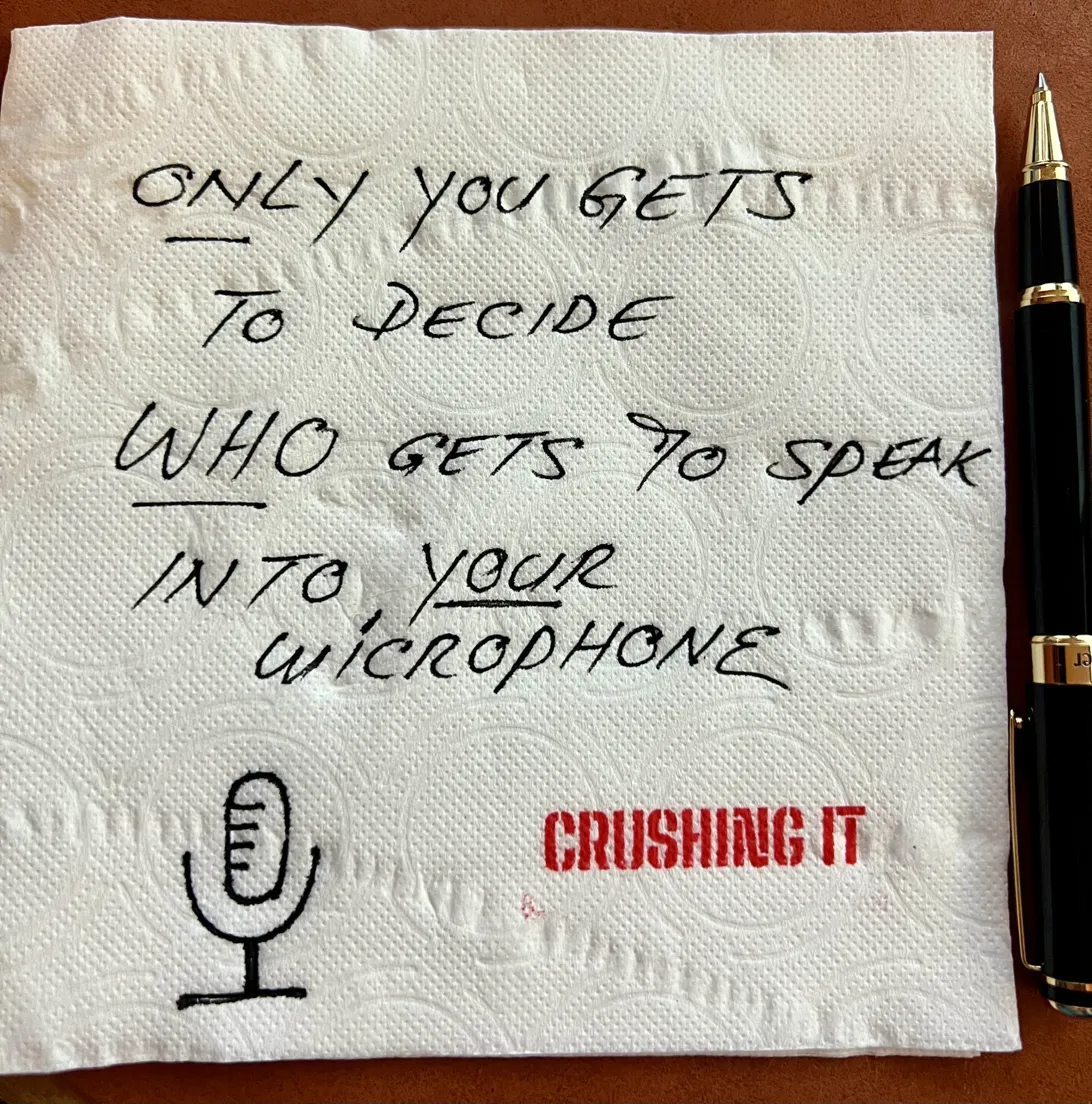 ONLY YOU GETS
TO DECIDE
WHO GETS TO SPEAK
INTO, YOUR
MICROPHONE
CRUSHING IT